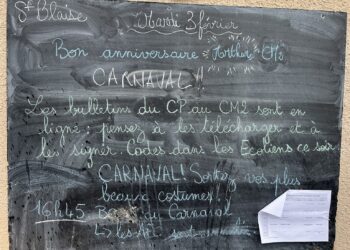 St Blaise
Mardi 3 février
Bon anniversaire Arthur CM2
CARNAVAL!
Les bulletins du CP au CM2 sont en
ligne : pensez à les télécharger et à
les signer. Codes dans les Ecoliens ce soir
CARNAVAL! Sortez vos plus
beaux costumes!
16h45 du Carnaval
les sont